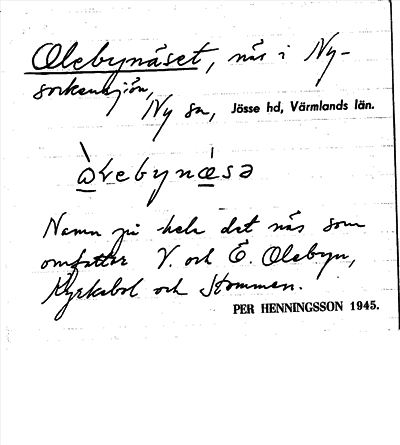 Olebynäset, näs i Ny-
sockensjön,
Ny sn, Jösse hd, Värmlands län.
Namn på hela det näs som
omfattar V. och Ö. Olebyn,
Kyrkebol och Stommen.
PER HENNINGSSON 1945.